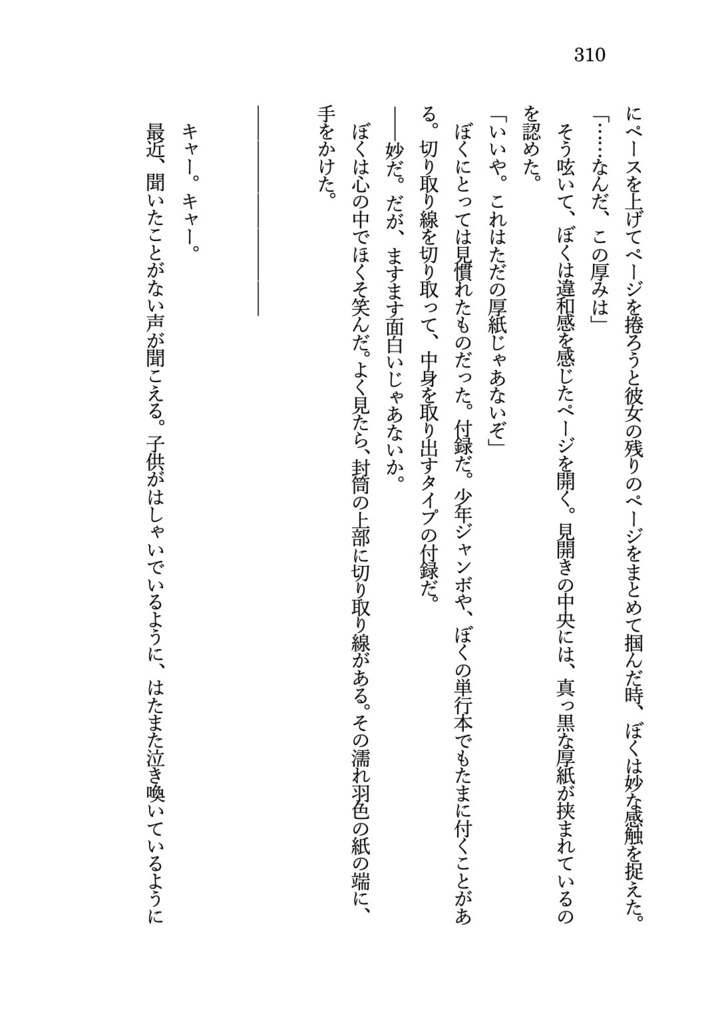 310
にペースを上げてページを捲ろうと彼女の残りのページをまとめて掴んだ時、ぼくは妙な感触を捉えた。
「……なんだ、この厚みは」
そう呟いて、ぼくは違和感を感じたページを開く。見開きの中央には、真っ黒な厚紙が挟まれているの
を認めた。
「いいや。これはただの厚紙じゃあないぞ」
ぼくにとっては見慣れたものだった。付録だ。少年ジャンボや、ぼくの単行本でもたまに付くことがあ
る。切り取り線を切り取って、中身を取り出すタイプの付録だ。
――妙だ。だが、ますます面白いじゃあないか。
ぼくは心の中でほくそ笑んだ。よく見たら、封筒の上部に切り取り線がある。その濡れ羽色の紙の端に、
手をかけた。
キャー。キャー。
最近、聞いたことがない声が聞こえる。子供がはしゃいでいるように、はたまた泣き喚いているように